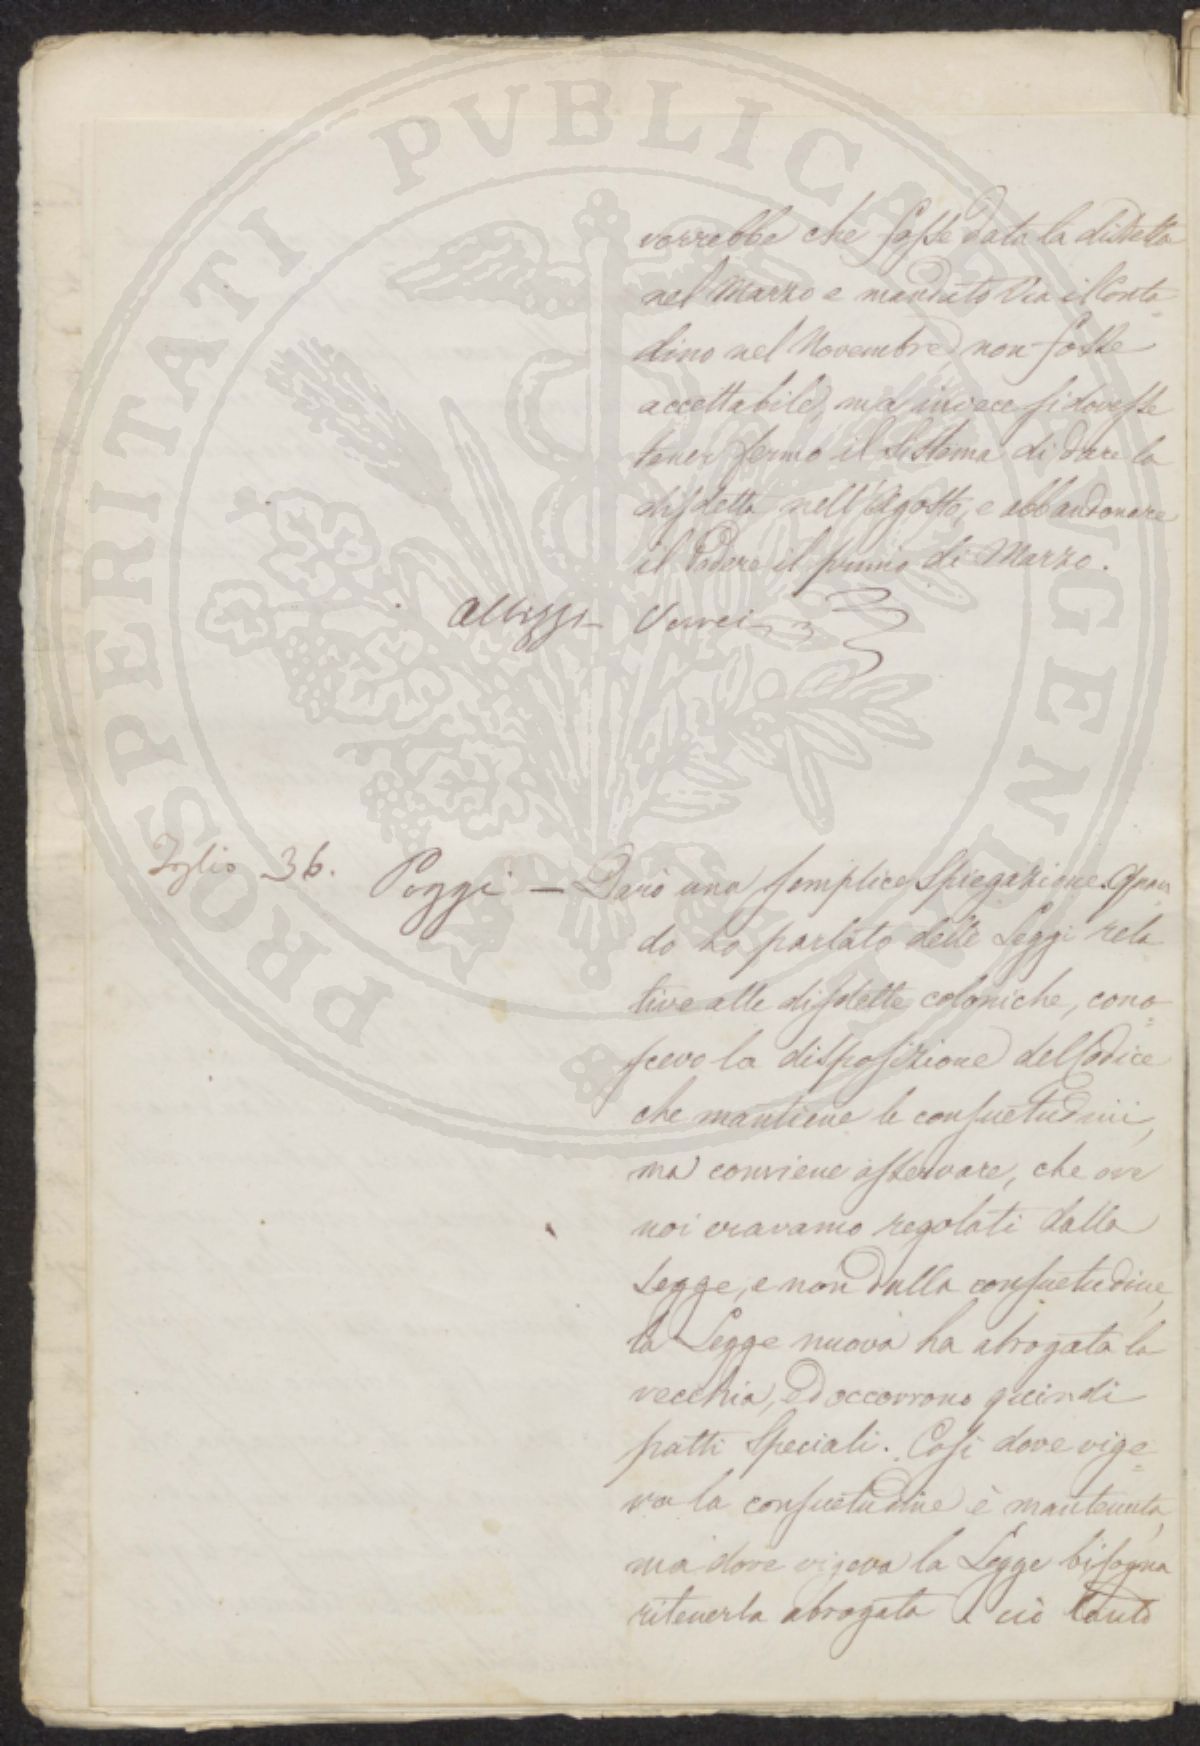 PROSPERITATI PVBLICAE AVGENDAE
vorrebbe che fosse data la disdetta
nel Marzo e mandato via il Conta
dino nel Novembre, non fosse
accettabile, ma invece si dovesse
tener fermo il sistema di dare la
disdetta nell'Agosto, e abbandonare
il Podere il primo di Marzo.
Foglio 36.
Poggi — Darò una semplice spiegazione. Quan
do ho parlato delle Leggi rela
tive alle disdette coloniche, cono=
scevo la disposizione del Codice
che mantiene le consuetudini,
ma conviene osservare, che ove
noi eravamo regolati dalla
Legge, e non dalla consuetudine,
la Legge nuova ha abrogata la
vecchia, ed occorrono quindi
patti speciali. Così dove vige=
va la consuetudine è mantenuta,
ma dove vigeva la Legge bisogna
ritenerla abrogata e ciò tanto